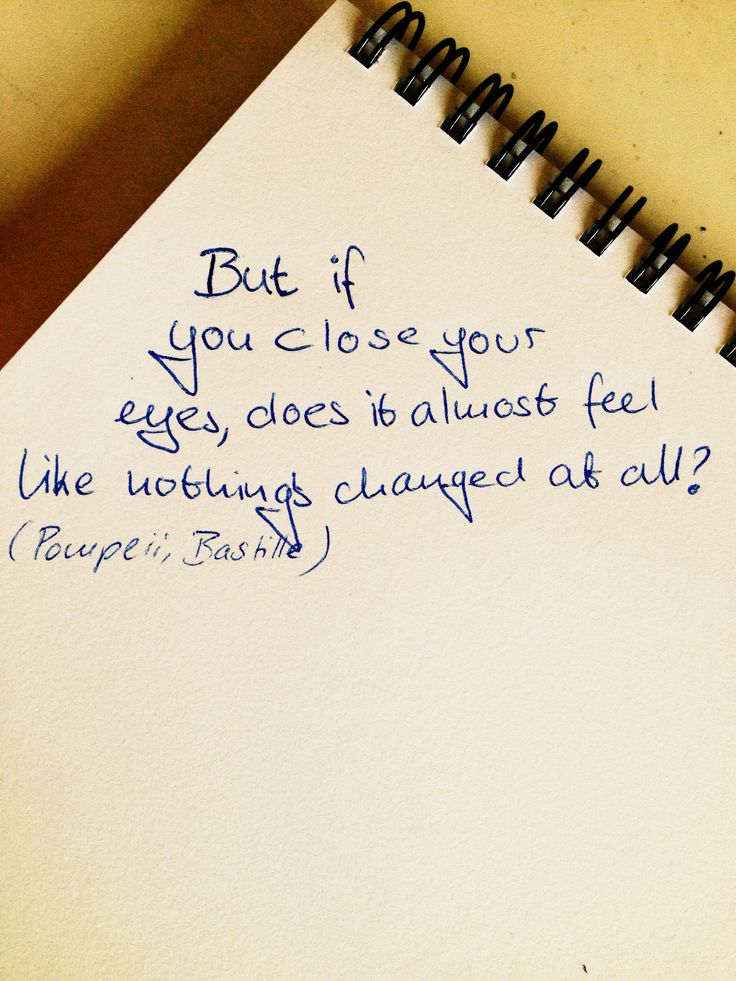 But if
you close your
eyes, does it almost feel
like nothing's changed at all?
(Pompeii, Bastille)